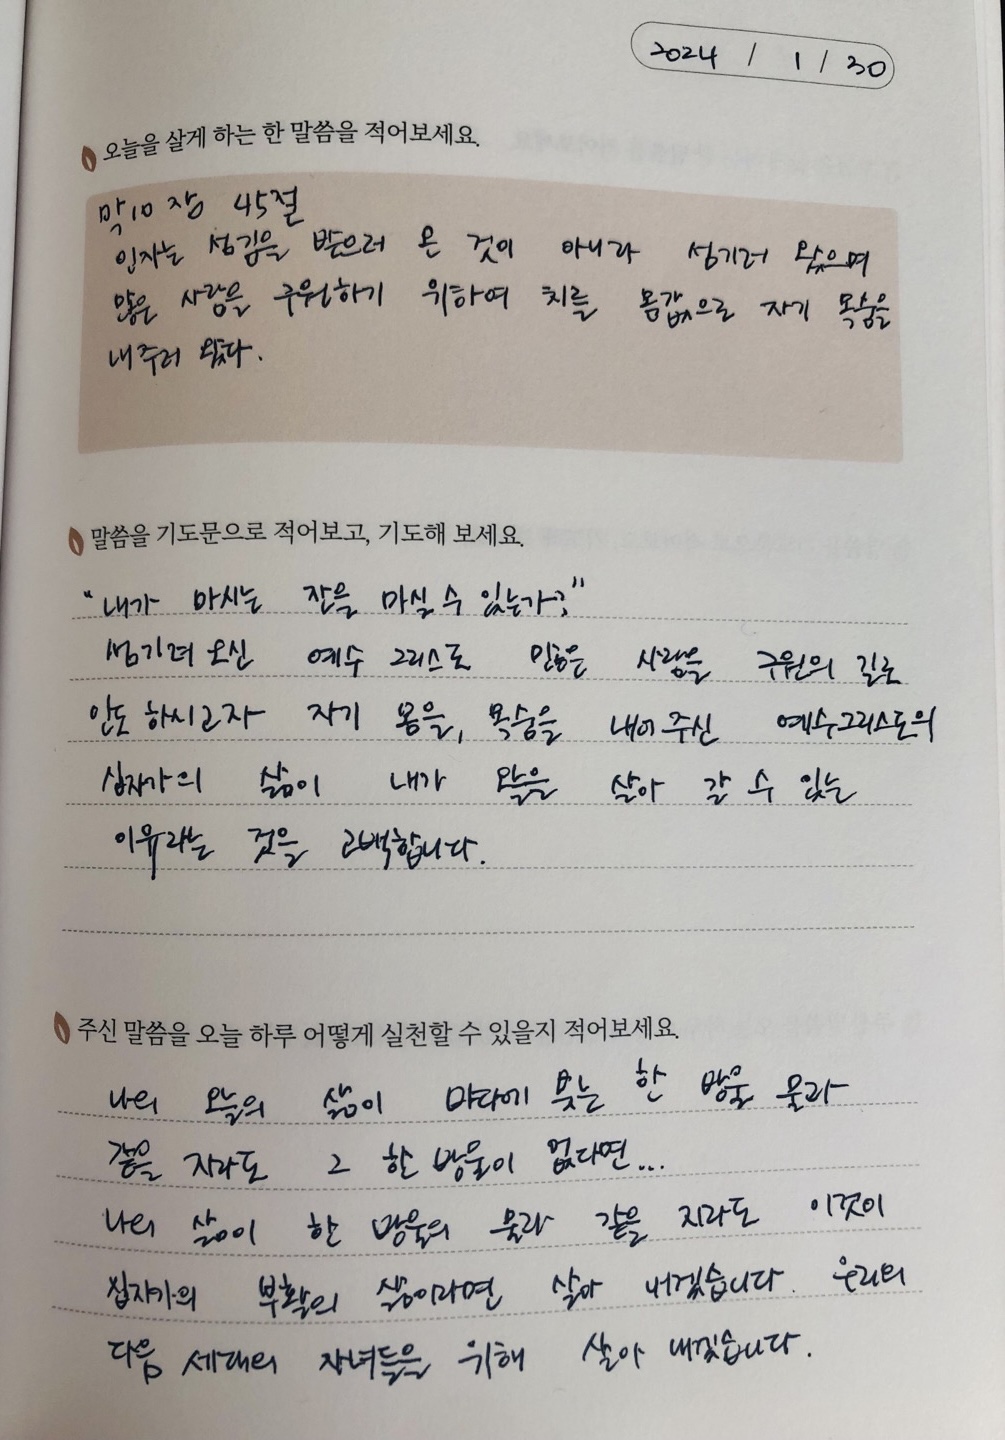 2024 / 1 / 30
오늘을 살게 하는 한 말씀을 적어보세요.
막10장 45절
인자는 섬김을 받으러 온 것이 아니라 섬기러 왔으며
많은 사람을 구원하기 위하여 치를 몸값으로 자기 목숨을
내주러 왔다.
말씀을 기도문으로 적어보고, 기도해 보세요.
"내가 마시는 잔을 마실 수 있는가?"
섬기려 오신 예수 그리스도 많은 사람을 구원의 길로
인도 하시고자 자기 몸을, 목숨을 내어주신 예수그리스도의
십자가의 삶이 내가 오늘을 살아 갈 수 있는
이유라는 것을 고백합니다.
주신 말씀을 오늘 하루 어떻게 실천할 수 있을지 적어보세요.
나의 오늘의 삶이 바다에 붓는 한 방울 물과
같을 지라도 그 한 방울이 없다면...
나의 삶이 한 방울의 물과 같을 지라도 이것이
십자가의 부활의 삶이라면 살아 내겠습니다. 우리의
다음 세대의 자녀들을 위해 살아 내겠습니다.